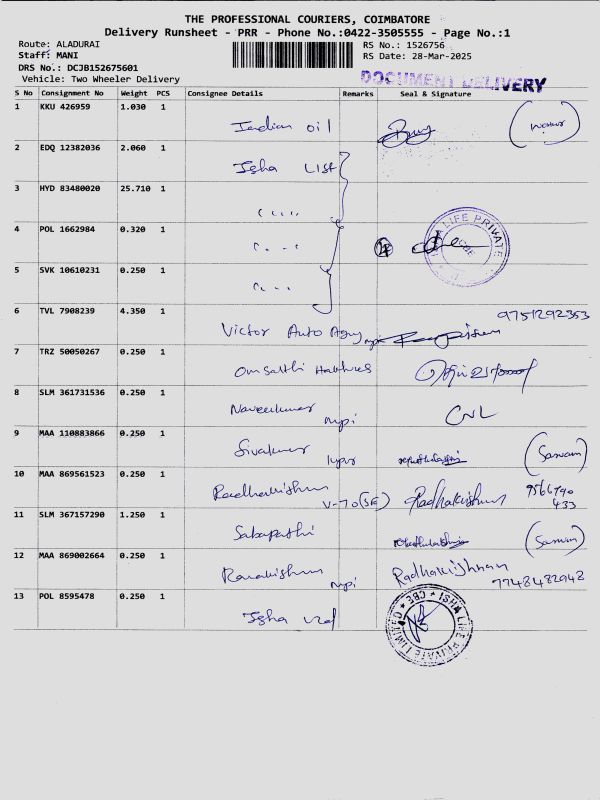 THE PROFESSIONAL COURIERS, COIMBATORE
Delivery Runsheet - PRR - Phone No.:0422-3505555 - Page No.:1
Route: ALADURAI
Staff: MANI
DRS No.: DCJB152675601
Vehicle: Two Wheeler Delivery
RS No.: 1526756
RS Date: 28-Mar-2025
DOCUMENT DELIVERY
S No Consignment No Weight PCS Consignee Details Remarks Seal & Signature
1 KKU 426959 1.030 1
Indian oil
2 EDQ 12382036 2.060 1
Isha
3 HYD 83480020 25.710 1
4 POL 1662984 0.320 1
ISHA LIFE PRIVATE
CBE
5 SVK 10610231 0.250 1
6 TVL 7908239 4.350 1
9751292353
Victor Auto
7 TRZ 50050267 0.250 1
Omsakthi
8 SLM 361731536 0.250 1
Naveenkumar
CNL
9 MAA 110883866 0.250 1
Sivakumar
10 MAA 869561523 0.250 1
Radhakrishnan V-70(SE) Radhakrishnan
11 SLM 367157290 1.250 1
Sabapathi
12 MAA 869002664 0.250 1
Ramakrishnan Radhakrishnan
7748482948
13 POL 8595478 0.250 1
Isha
ISHA LIFE PRIVATE LIMITED * CBE *